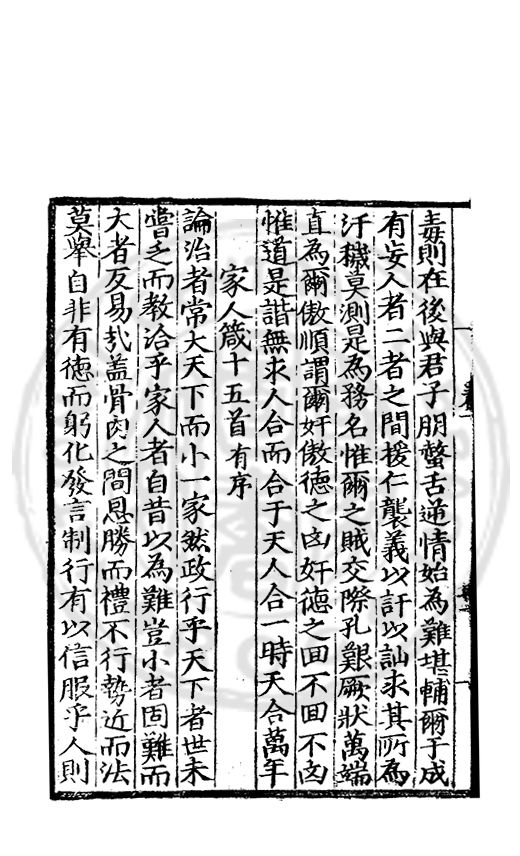 毒則在後與君子朋螫舌逆情始為難堪輔爾于成
有妄人者二者之間援仁襲義以訐以訕求其所為
汙穢莫測是為務名惟爾之賊交際孔艱厥狀萬端
直為爾傲順謂爾奸傲德之凶奸德之回不回不凶
惟道是諧無求人合而合于天人合一時天合萬年
家人箴十五首有序
論治者常大天下而小一家然政行乎天下者世未
嘗乏而教洽乎家人者自昔以為難豈小者固難而
大者反易㢤盖骨肉之間恩勝而禮不行勢近而法
莫舉自非有德而躬化發言制行有以信服乎人則